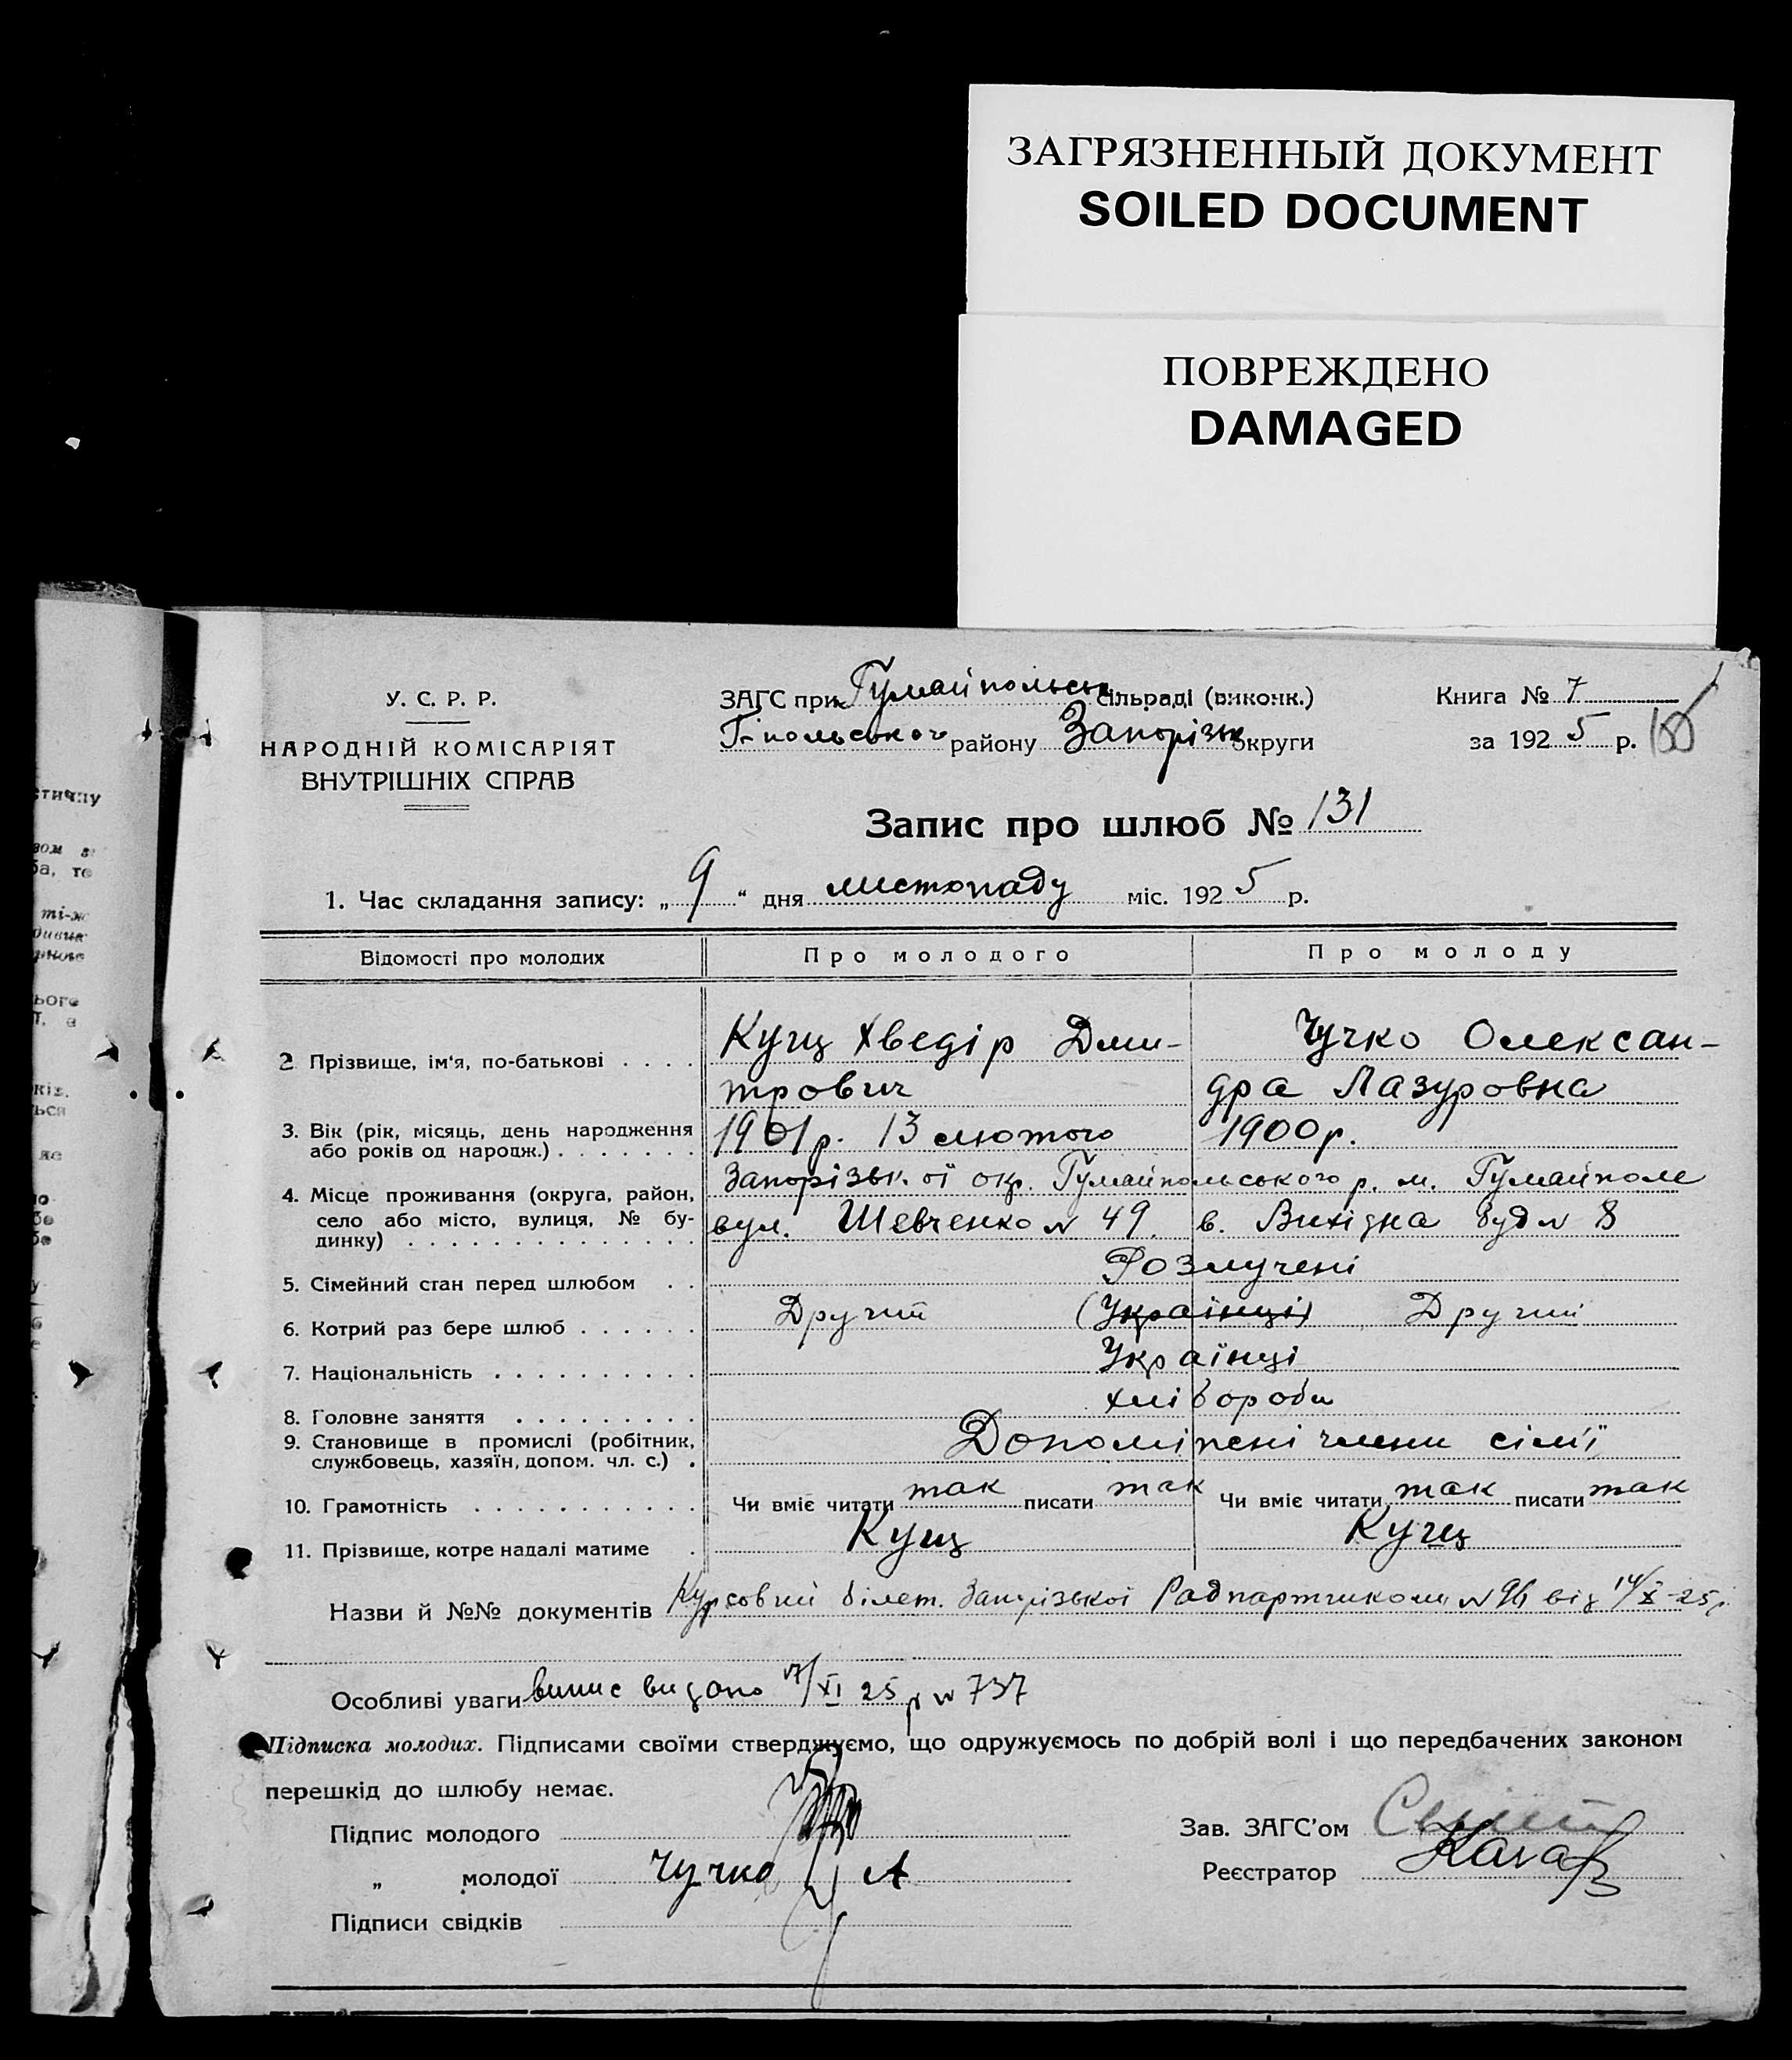 ЗАГРЯЗНЕННЫЙ ДОКУМЕНТ
SOILED DOCUMENT
ПОВРЕЖДЕНО
DAMAGED
У. С. Р. Р.
НАРОДНІЙ КОМІСАРІЯТ
ВНУТРІШНІХ СПРАВ
ЗАГС при Гуляйпольськ сільраді (виконк.)
Г-польського району Запорізьк округи
Книга № 7
за 1925 р.
Запис про шлюб № 131
1. Час складання запису: „ 9 “ дня листопаду міс. 1925 р.
Відомості про молодих Про молодого Про молоду
2 Прізвище, ім'я, по-батькові . . . . Кущ Хведір Дми- Чучко Олексан-
трович дра Лазуровна
3. Вік (рік, місяць, день народження 1901 р. 13 лютого 1900 р.
або років од народж.) . . . . . . .
4. Місце проживання (округа, район, Запорізьк.ої окр. Гуляйпольського р. м. Гуляйполе
село або місто, вулиця, № бу- вул. Шевченко № 49. в. Вихідна буд № 8
динку) . . . . . . . . . . . . . .
5. Сімейний стан перед шлюбом . . Розлучені
6. Котрий раз бере шлюб . . . . . . Другий (Українці) Другий
7. Національність . . . . . . . . . . Українці
8. Головне заняття . . . . . . . . . хлібороби
9. Становище в промислі (робітник, Допоміжні члени сім'ї
службовець, хазяїн, допом. чл. с.) .
10. Грамотність . . . . . . . . . . . Чи вміє читати так писати так Чи вміє читати так писати так
11. Прізвище, котре надалі матиме . Кущ Кущ
Назви й №№ документів Курсовий білет. Запорізької Радпартшколи № 96 від 14/X-25р.
Особливі уваги випис видано 17/XI 25 р № 737
Підписка молодих. Підписами своїми стверджуємо, що одружуємось по добрій волі і що передбачених законом
перешкід до шлюбу немає.
Підпис молодого
Зав. ЗАГС'ом
„ молодої Чучко А
Реєстратор
Підписи свідків